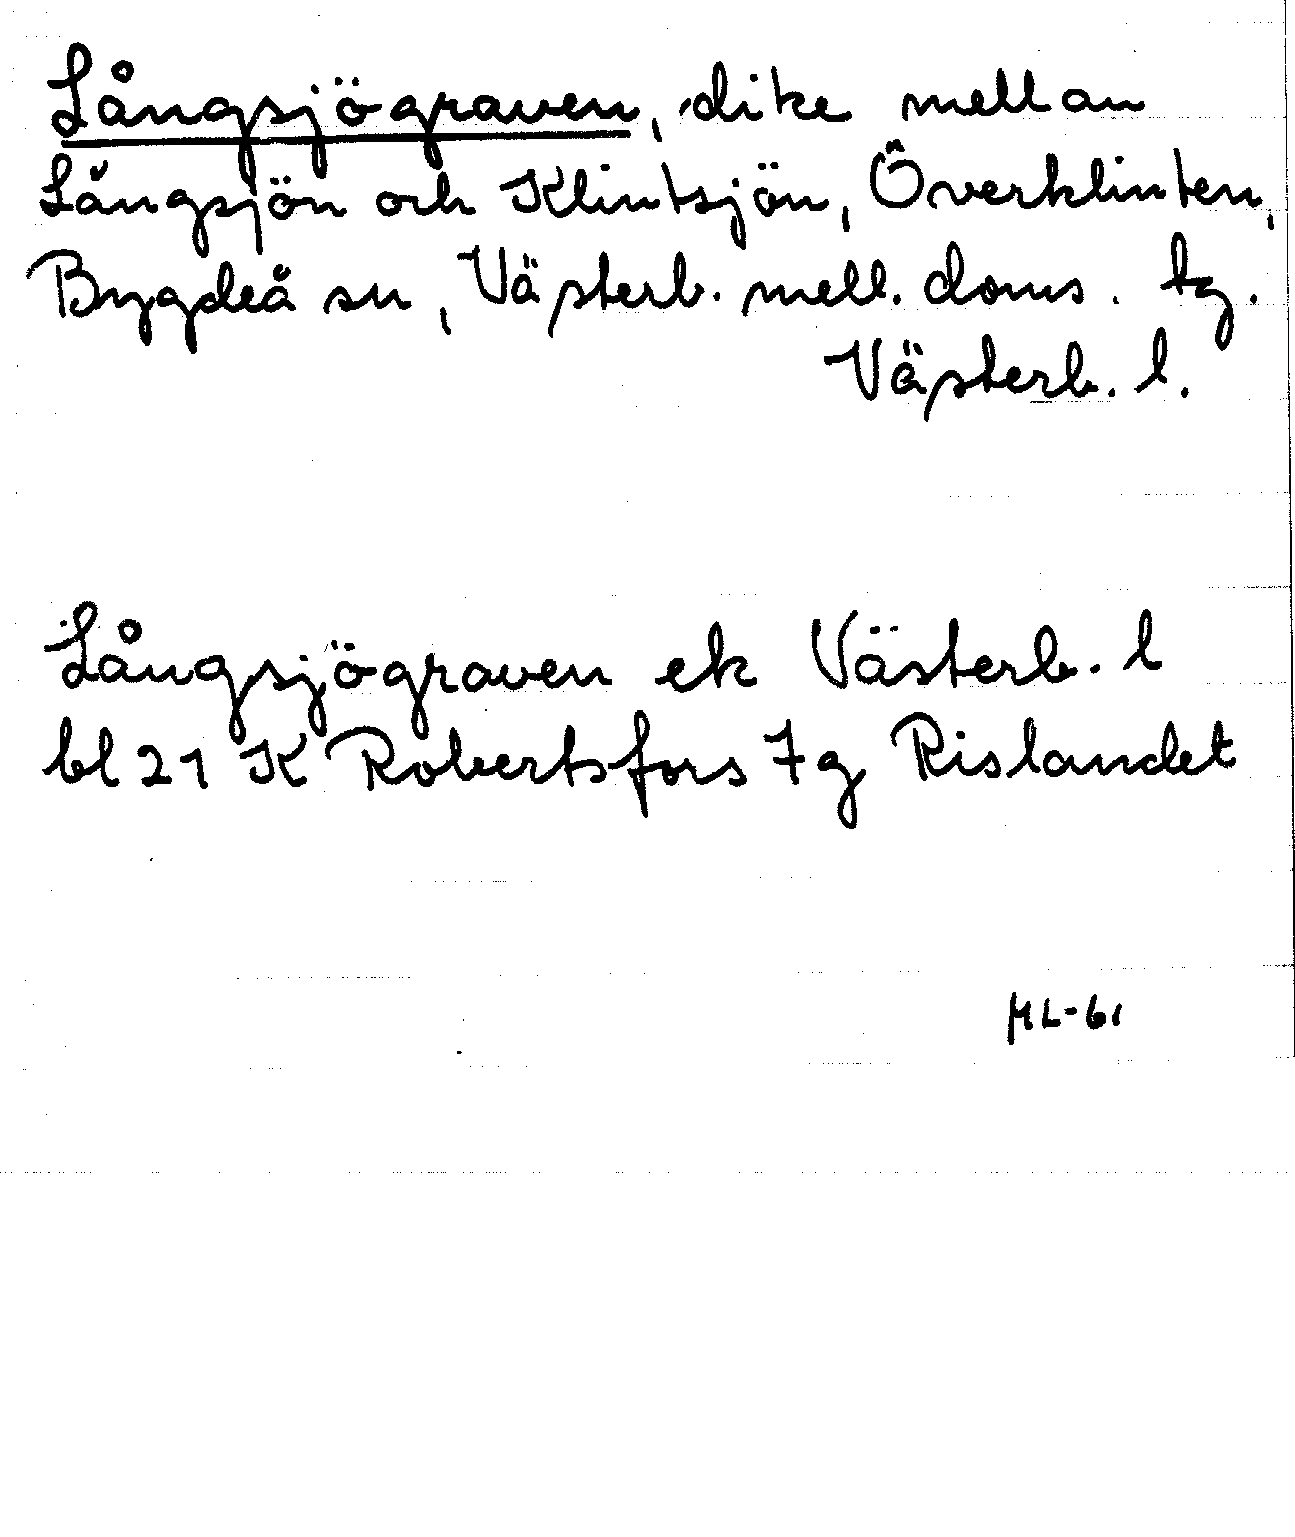 Långsjögraven, dike mellan
Långsjön och Klintsjön, Överklinten,
Bygdeå sn, Västerb. mell. doms. tg.
Västerb. l.
Långsjögraven ek Västerb. l
bl 21 K Robertsfors 7 g Rislandet
ML-61